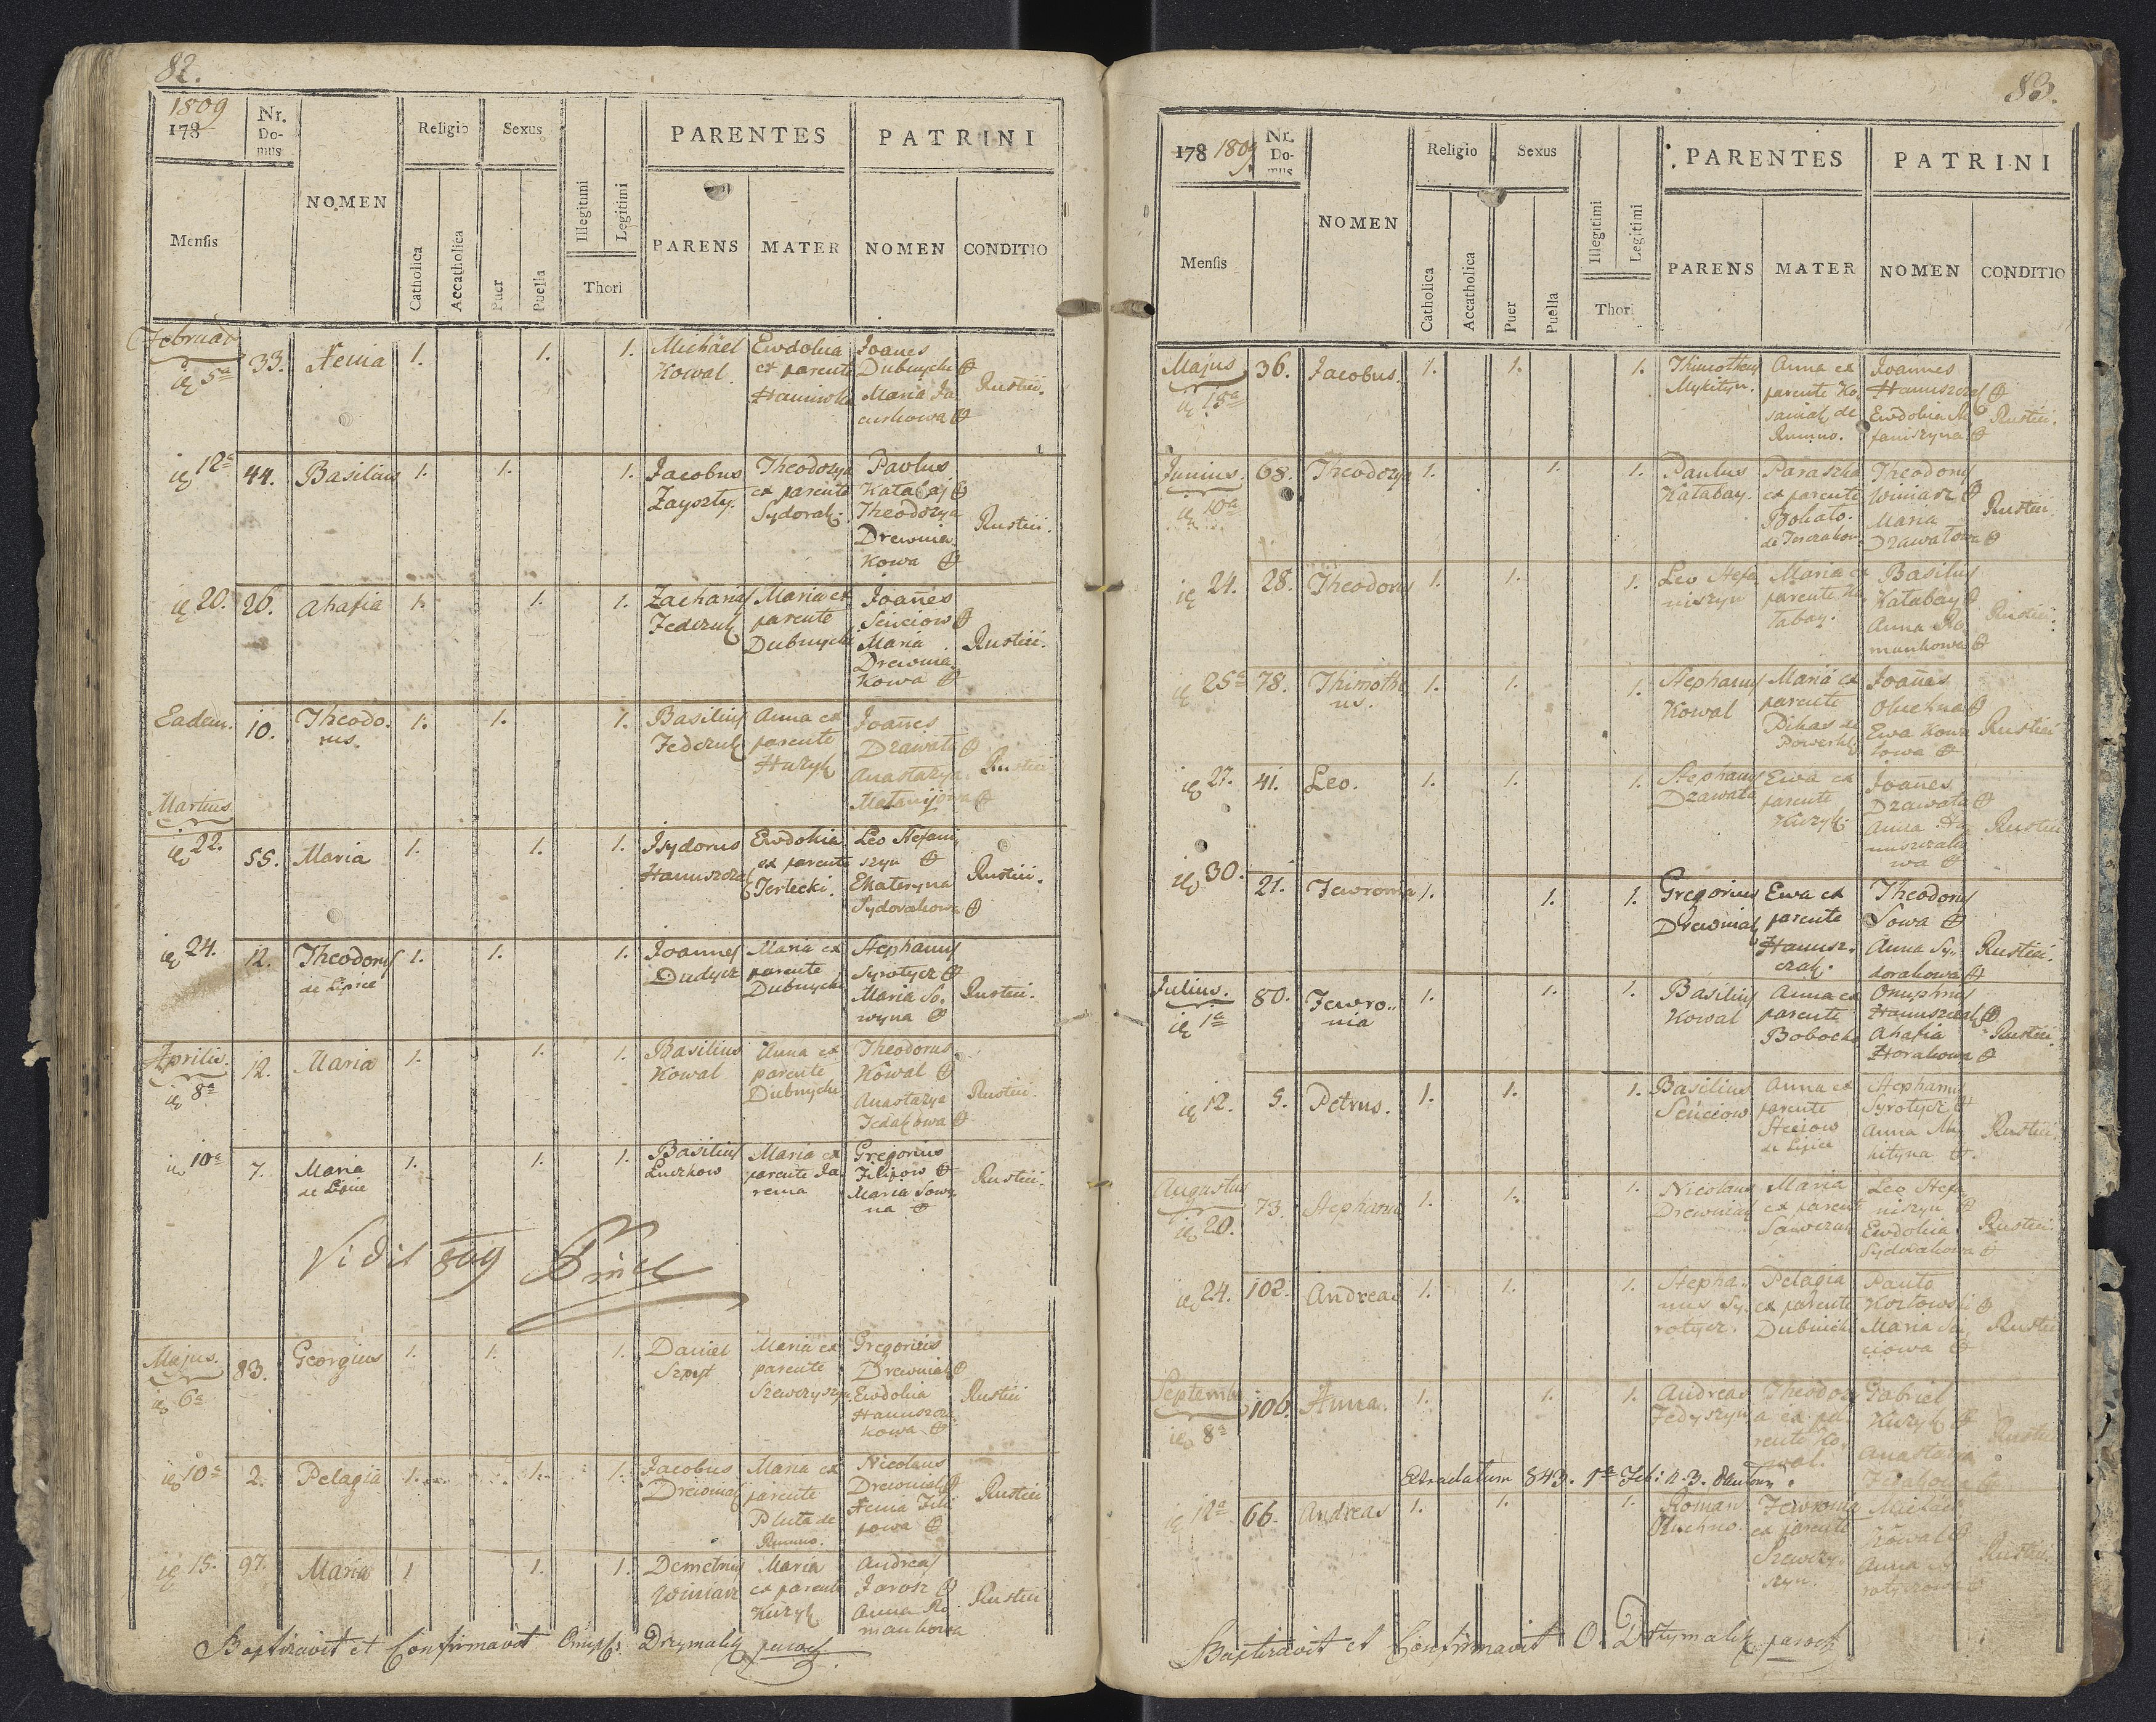 82.
1809
178
Nr. Domus
Mensis
NOMEN
Religio
Catholica
Accatholica
Sexus
Puer
Puella
Illegitimi
Legitimi
Thori
PARENTES
PARENS
MATER
PATRINI
NOMEN
CONDITIO
Februar
5a 33. Xenia 1. 1. 1. Michael Kowal Ewdokia ex parente Joanes Dubnycki Maria Rustici.
12a 44. Basilius 1. 1. 1. Jacobus Zayszły. Theodozya ex parente Sydorak. Pavlus Katabaj Theodozya Drewniakowa Rustici.
20. 26. Ahafia 1. 1. 1. Zacharias Fedczuk Maria ex parente Dubnycki Joanes Senciow Maria Drewniakowa Rustici.
Eadem. 10. Theodorus. 1. 1. 1. Basilius Fedczuk Anna ex parente Huzyk Joanes Dzawała Anastazya Rustici
Martius
22. 55. Maria 1. 1. 1. Isydorus Hanuszczak Ewdokia ex parente Terlecki. Leo Stefaniszyn Ekateryna Sydorakowa Rustici.
24. 12. Theodorus de Lipice 1. 1. 1. Joannes Dudycz Maria ex parente Dubnycki Stephanus Syrotycz Maria Sowyna Rustici.
Aprilis.
8a 12. Maria 1. 1. 1. Basilius Kowal Anna ex parente Dubnycki Theodorus Kowal Anastazya Rustici.
10a 7. Maria de Lipice 1. 1. 1. Basilius Luczkow Maria ex parente Jarema Gregorius Filipow Maria Sowyna Rustici.
Vidit 809
Majus.
6a 83. Georgius 1. 1. 1. Daniel Maria ex parente Szewczyszyn Gregorius Drewniak Ewdokia Hanuszczakowa Rustici
10a 2. Pelagia 1. 1. 1. Jacobus Drewniak Maria ex parente Pluta de Rumno. Nicolaus Drewniak Xenia Filipowa Rustici
15. 97. Maria 1 1. 1. Demetrius Winiarz Maria ex parente Kuzyk Andreas Jarosz Anna Romankowa Rustici
Baptizavit et Confirmavit Drzymalik paroch.
83.
178 1809
Nr. Domus
Mensis
NOMEN
Religio
Catholica
Accatholica
Sexus
Puer
Puella
Illegitimi
Legitimi
Thori
PARENTES
PARENS
MATER
PATRINI
NOMEN
CONDITIO
Majus
18a 36. Jacobus. 1. 1. 1. Thimotheus Mykityn. Anna ex parente Kosaniak de Rumno. Joannes Hanuszczak Ewdokia Stefaniszyna Rustici.
Junius.
10a 68. Theodozya 1. 1. 1. Paulus Katabay. Paraszka ex parente Theodorus Winiarz Maria Dzawałowa Rustici
24. 28. Theodorus 1. 1. 1. Leo Stefaniszyn Maria ex parente Katabay. Basilius Katabay Anna Romankowa Rustici.
25a 78. Thimotheus. 1. 1. 1. Stephanus Kowal Maria ex parente Joanes Ewa Kowalowa Rustici
27. 41. Leo. 1. 1. 1. Stephanus Dzawała Ewa ex parente Kuzyk. Joanes Dzawała Anna Hanuszczakowa Rustici
30. 21. Fewronia 1. 1. 1. Gregorius Drewniak Ewa ex parente Hanuszczak. Theodorus Sowa Anna Sydorakowa Rustici.
Julius.
1a 80. Fewronia 1. 1. 1. Basilius Kowal Anna ex parente Onuphrius Hanuszczak Ahafia Rustici.
12. 5. Petrus. 1. 1. 1. Basilius Senciow Anna ex parente de Lipice Stephanus Syrotycz Anna Mykityna Rustici.
Augustus
20. 73. Stephanus 1. 1. 1. Nicolaus Drewniak Maria ex parente Leo Stefaniszyn Ewdokia Sydorakowa Rustici
24. 102. Andreas 1. 1. 1. Stephanus Syrotycz. Pelagia ex parente Dubnicki Pauło Kozłowski Maria Rustici
Septembr
8a 106. Anna. 1. 1. 1. Andreas Fedyszyn Theodozya ex parente Kowal. Gabriel Kuzyk Anastazya Rustici
Extradatum 843. 1a
12a 66. Andreas 1. 1. 1. Roman Fewronia ex parente Szewczyszyn. Michael Kowal Anna Rustici
Baptizavit et Confirmavit O. Drzymalik paroch